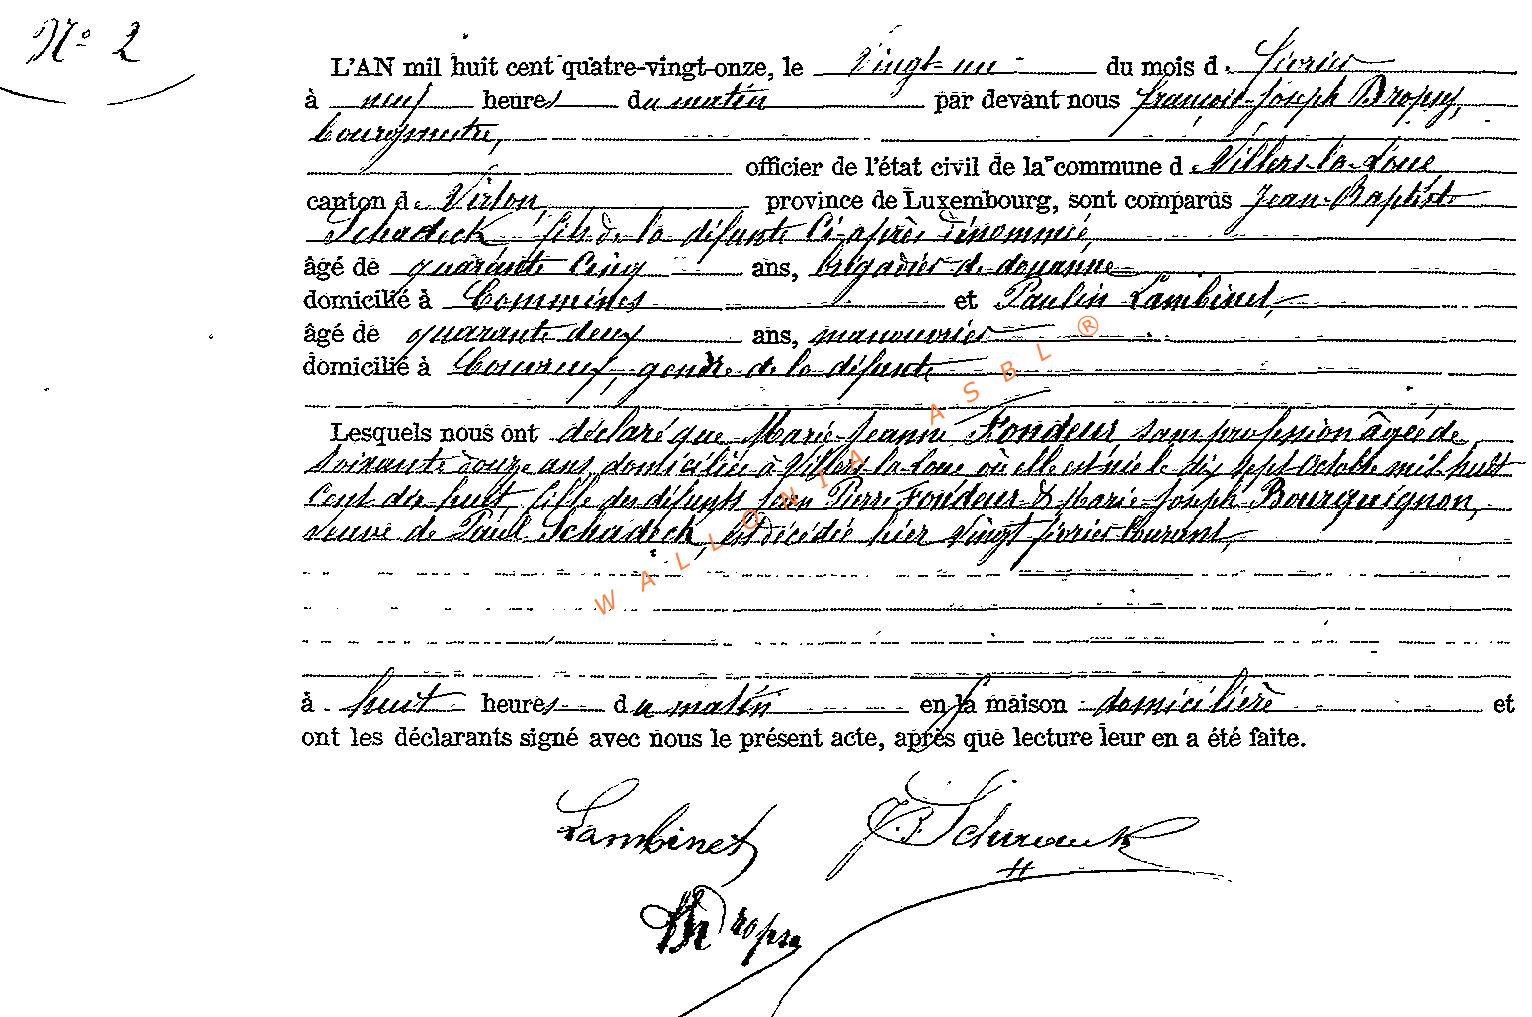 No 2
L'AN mil huit cent quatre-vingt-onze, le Vingt-un du mois de février
à neuf heures du matin par devant nous françois-Joseph Dropsy,
bourgmestre,
officier de l'état civil de la commune de Villers-la-Loue
canton de Virton, province de Luxembourg, sont comparus Jean-Baptiste
Schadeck, fils de la défunte ci-après dénommée,
âgé de quarante cinq ans, brigadier de douanne
domicilié à Commines et Paulin Lambinet,
âgé de quarante deux ans, manouvrier
domicilié à Couvreux, gendre de la défunte
Lesquels nous ont déclaré que Marie-Jeanne Fondeur sans profession âgée de
Soixante douze ans, domiciliée à Villers-la-Loue où elle est née le dix sept Octobre mil huit
Cent dix huit, fille des défunts Jean Pierre Fondeur & Marie-Joseph Bourguignon,
veuve de Paul Schadeck, est décédée hier Vingt février Courant,
à huit heures du matin en sa maison domicilière et
ont les déclarants signé avec nous le présent acte, après que lecture leur en a été faite.
Lambinet J.B. 
Dropsy
WALLONIA ASBL ®